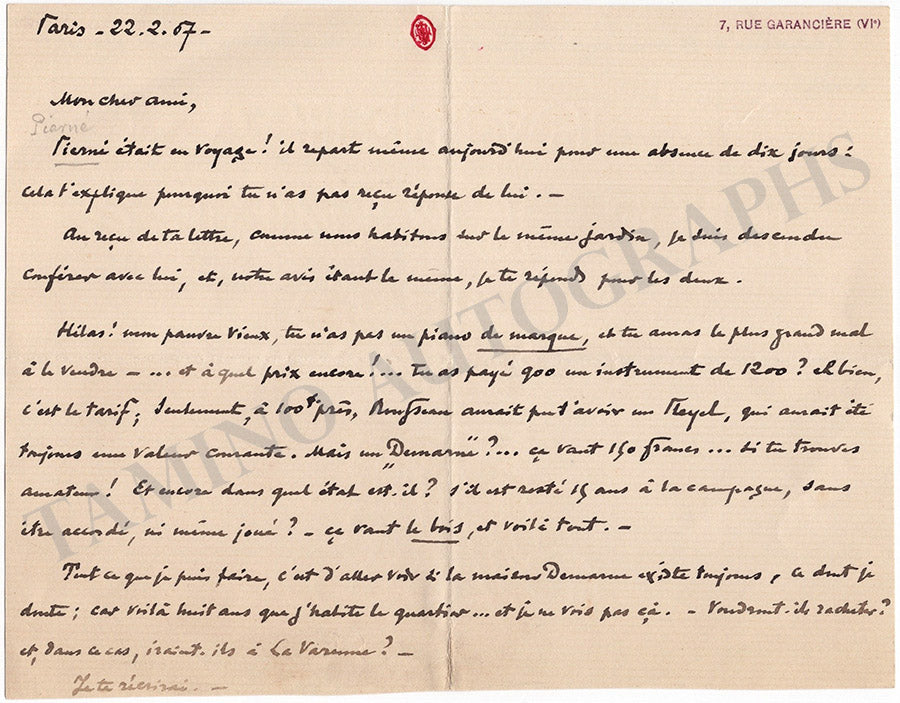 Paris - 22.2.07 -
7, RUE GARANCIÈRE (VIe)
Mon cher ami,
Pierné
Pierné était en voyage! il repart même aujourd'hui pour une absence de dix jours:
cela t'explique pourquoi tu n'as pas reçu réponse de lui. -
Au reçu de ta lettre, comme nous habitons sur le même jardin, je suis descendu
conférer avec lui, et, notre avis étant le même, je te réponds pour les deux.
Hélas! mon pauvre vieux, tu n'as pas un piano de marque, et tu auras le plus grand mal
à le vendre - ... et à quel prix encore!... tu as payé 900 un instrument de 1200? eh bien,
c'est le tarif; seulement, à 100f près, Rousseau aurait pu t'avoir un Pleyel, qui aurait été
toujours une valeur courante. Mais un "Demarne"?... ça vaut 150 francs... si tu trouves
amateur! Et encore dans quel état est-il? s'il est resté 15 ans à la campagne, sans
être accordé, ni même joué? - ça vaut le bois, et voilà tout. -
Tout ce que je puis faire, c'est d'aller voir si la maison Demarne existe toujours, ce dont je
doute; car voilà huit ans que j'habite le quartier... et je ne vois pas ça. - Voudront-ils racheter?
et, dans ce cas, iraient-ils à La Varenne? -
Je te récrirai. -
TAMINO AUTOGRAPHS